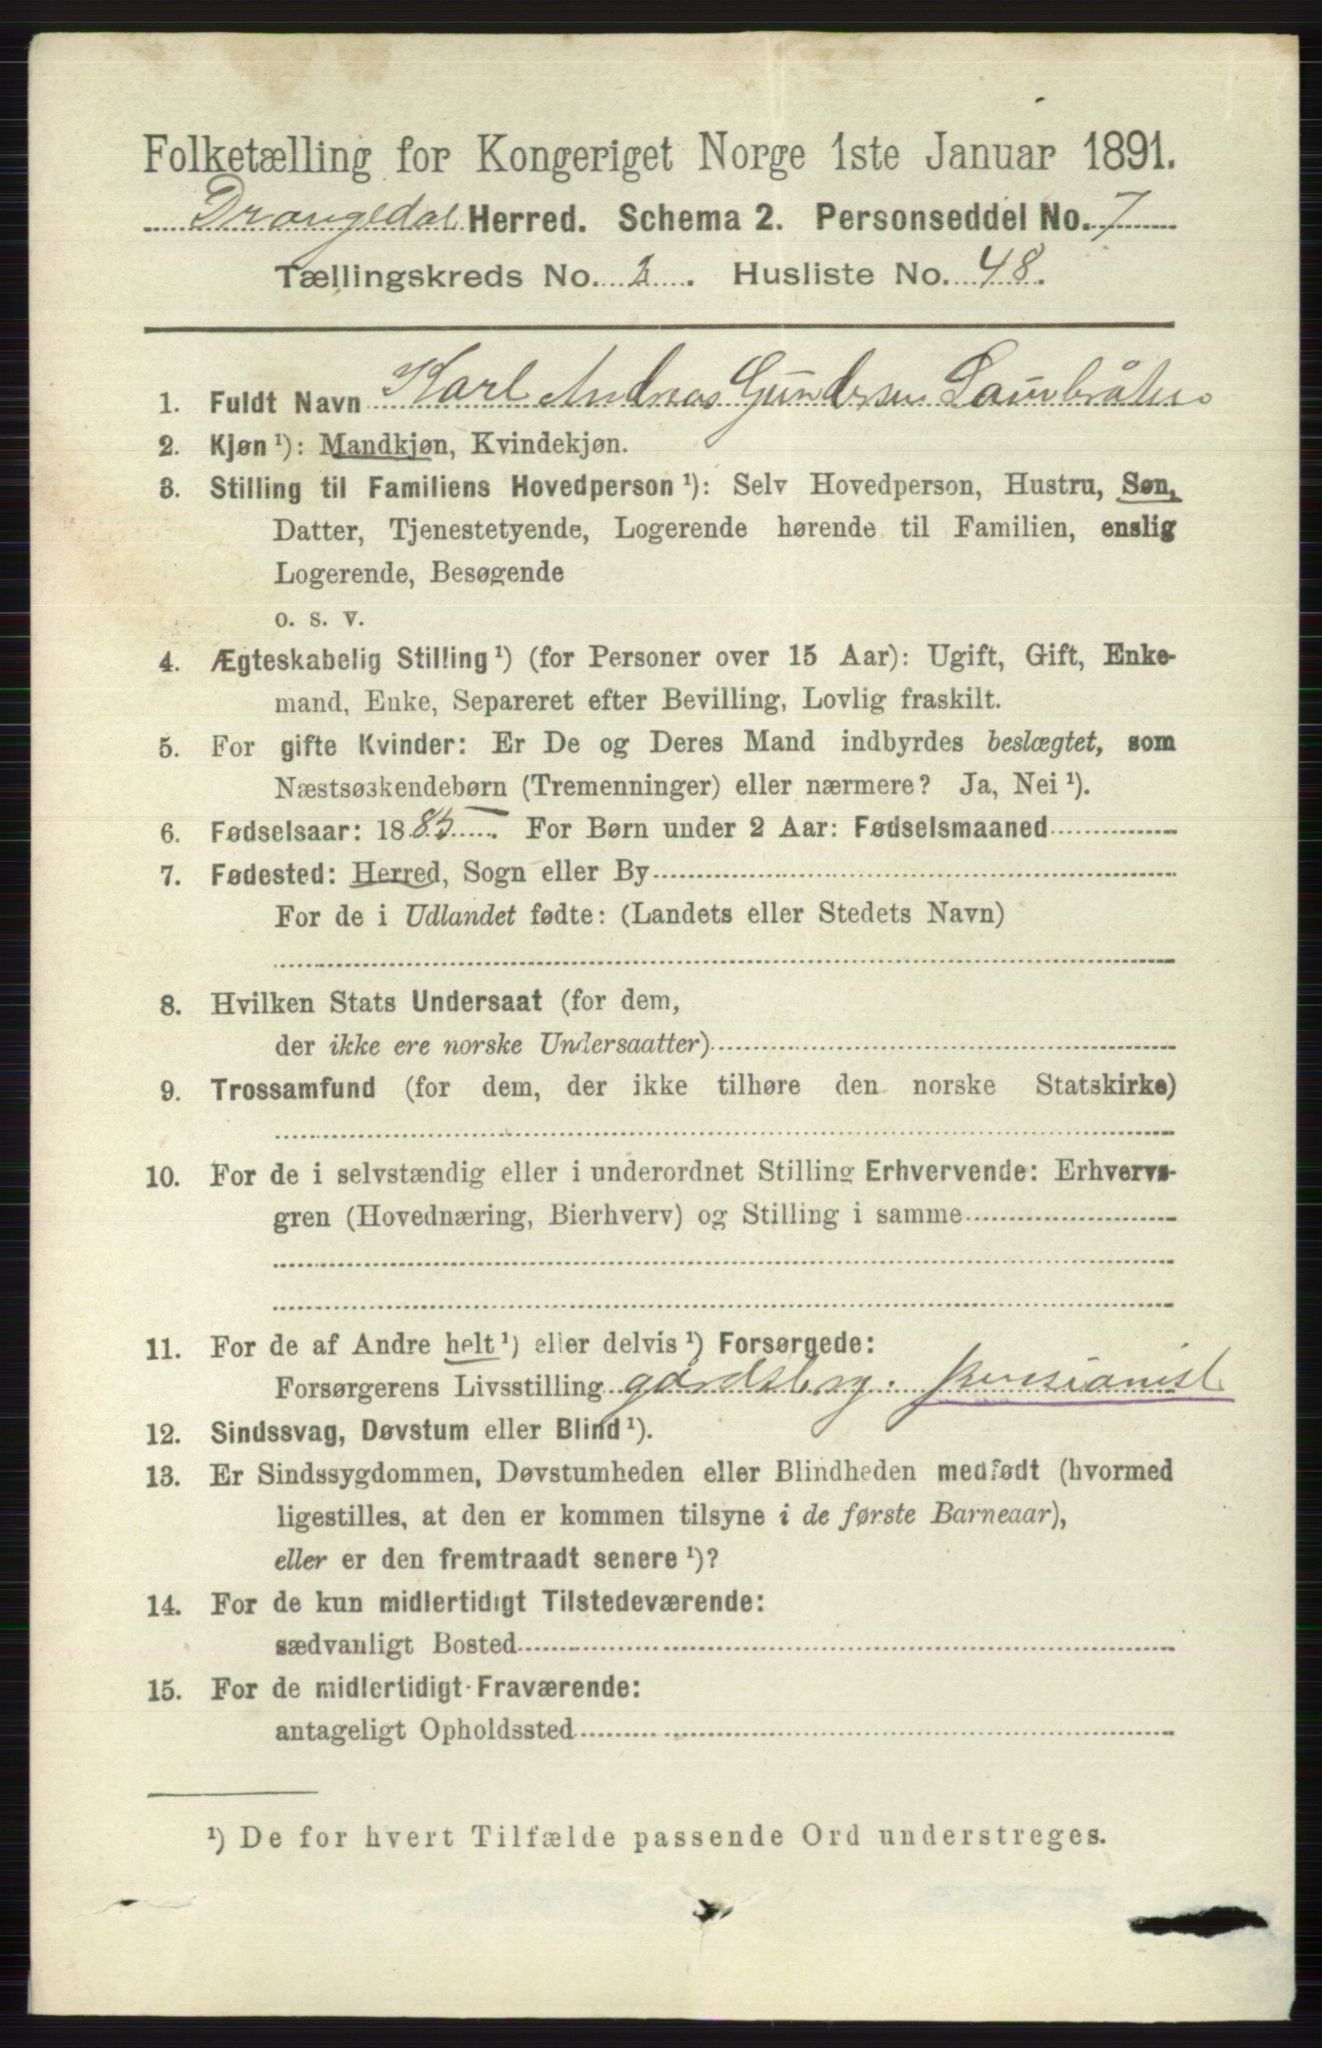 Folketælling for Kongeriget Norge 1ste Januar 1891.
Drangedal Herred. Schema 2. Personseddel No. 7
Tællingskreds No. 2. Husliste No. 48.
1. Fuldt Navn Karl Andreas Gundersen Laubråten
2. Kjøn ¹): Mandkjøn, Kvindekjøn.
3. Stilling til Familiens Hovedperson ¹): Selv Hovedperson, Hustru, Søn,
Datter, Tjenestetyende, Logerende hørende til Familien, enslig
Logerende, Besøgende
o. s. v.
4. Ægteskabelig Stilling ¹) (for Personer over 15 Aar): Ugift, Gift, Enke-
mand, Enke, Separeret efter Bevilling, Lovlig fraskilt.
5. For gifte Kvinder: Er De og Deres Mand indbyrdes beslægtet, som
Næstsøskendebørn (Tremenninger) eller nærmere? Ja, Nei ¹).
6. Fødselsaar: 1885. For Børn under 2 Aar: Fødselsmaaned
7. Fødested: Herred, Sogn eller By
For de i Udlandet fødte: (Landets eller Stedets Navn)
8. Hvilken Stats Undersaat (for dem,
der ikke ere norske Undersaatter)
9. Trossamfund (for dem, der ikke tilhøre den norske Statskirke)
10. For de i selvstændig eller i underordnet Stilling Erhvervende: Erhvervs-
gren (Hovednæring, Bierhverv) og Stilling i samme
11. For de af Andre helt ¹) eller delvis ¹) Forsørgede:
Forsørgerens Livsstilling gårdsbrug. pensianist
12. Sindssvag, Døvstum eller Blind ¹).
13. Er Sindssygdommen, Døvstumheden eller Blindheden medfødt (hvormed
ligestilles, at den er kommen tilsyne i de første Barneaar),
eller er den fremtraadt senere ¹)?
14. For de kun midlertidigt Tilstedeværende:
sædvanligt Bosted
15. For de midlertidigt Fraværende:
antageligt Opholdssted
¹) De for hvert Tilfælde passende Ord understreges.